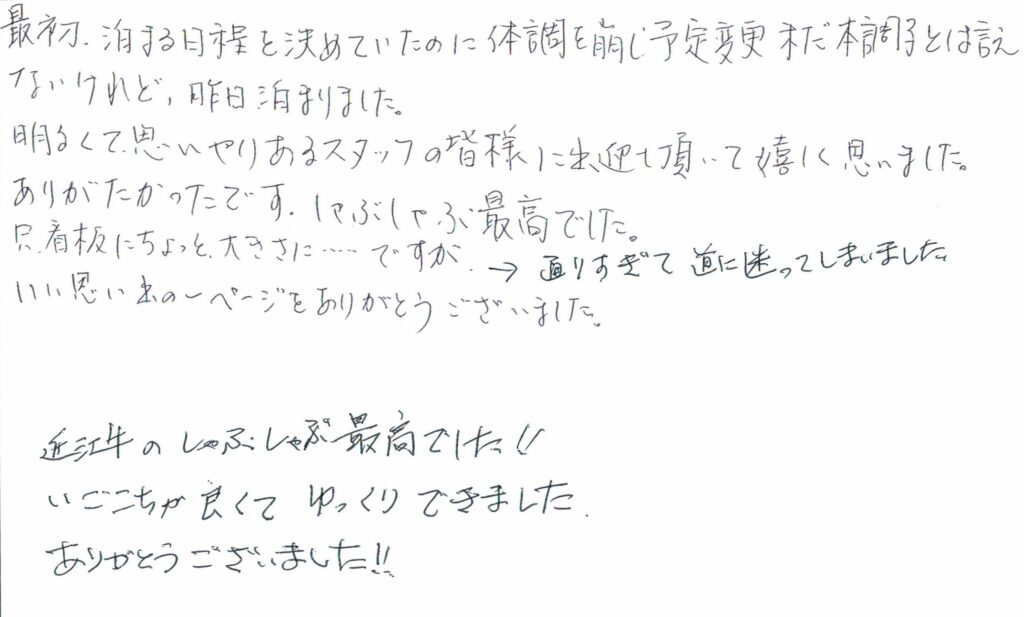 最初、泊まる日程を決めていたのに体調を崩し予定変更まだ本調子とは言え
ないけれど、昨日泊まりました。
明るくて、思いやりあるスタッフの皆様に出迎え頂いて嬉しく思いました。
ありがたかったです。しゃぶしゃぶ最高でした。
只、看板にちょっと、大きさに……ですが、→通りすぎて道に迷ってしまいました
いい思い出の一ページをありがとうございました。
近江牛のしゃぶしゃぶ最高でした!!
いごこちが良くてゆっくりできました.
ありがとうございました!!